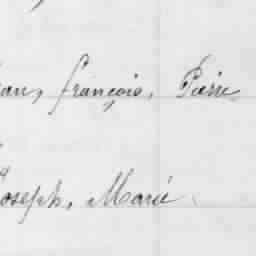 ean, françois, Pierre
Joseph, Marie